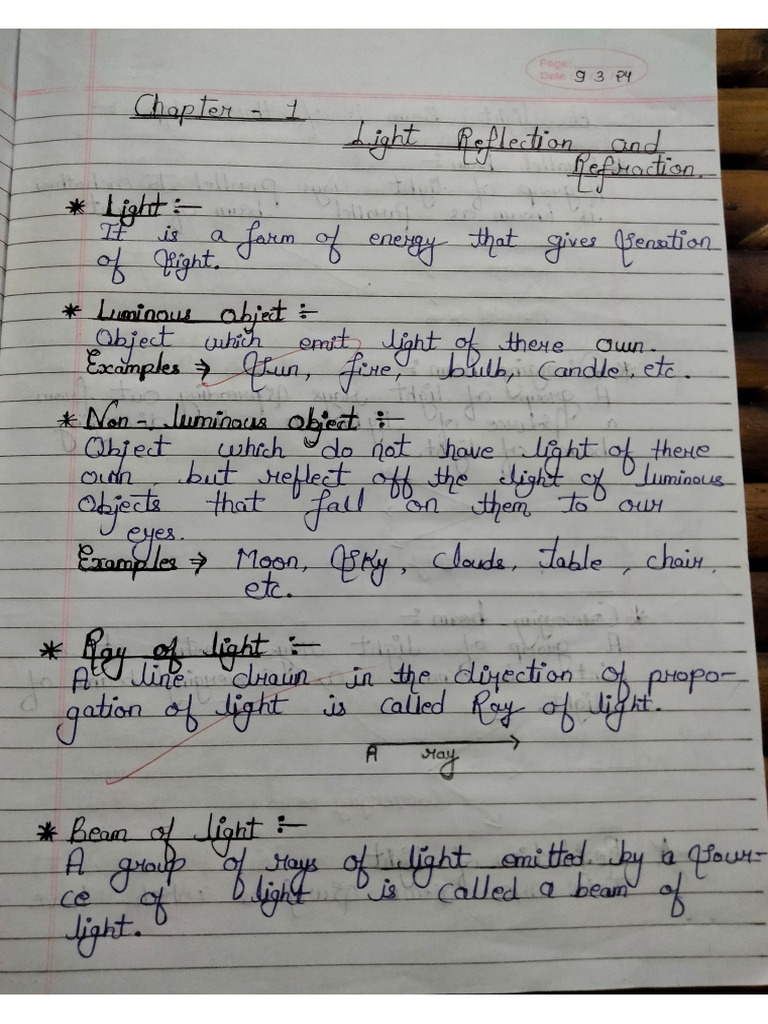 Page:
Date: 9/3/24
Chapter - 1
Light Reflection and
Refraction.
* Light :-
It is a form of energy that gives Sensation
of Sight.
* Luminous object :-
Object which emit light of there own.
Examples → Sun, fire, bulb, Candle, etc.
* Non-luminous object :-
Object which do not have light of there
own, but reflect off the light of luminous
Objects that fall on them to our
eyes.
Examples → Moon, Sky, Clouds, Table, chair,
etc.
* Ray of light :-
A line drawn in the direction of propo-
gation of light is called Ray of light.
A ray
* Beam of light :-
A group of rays of light emitted by a Sour-
ce of light is called a beam of
light.